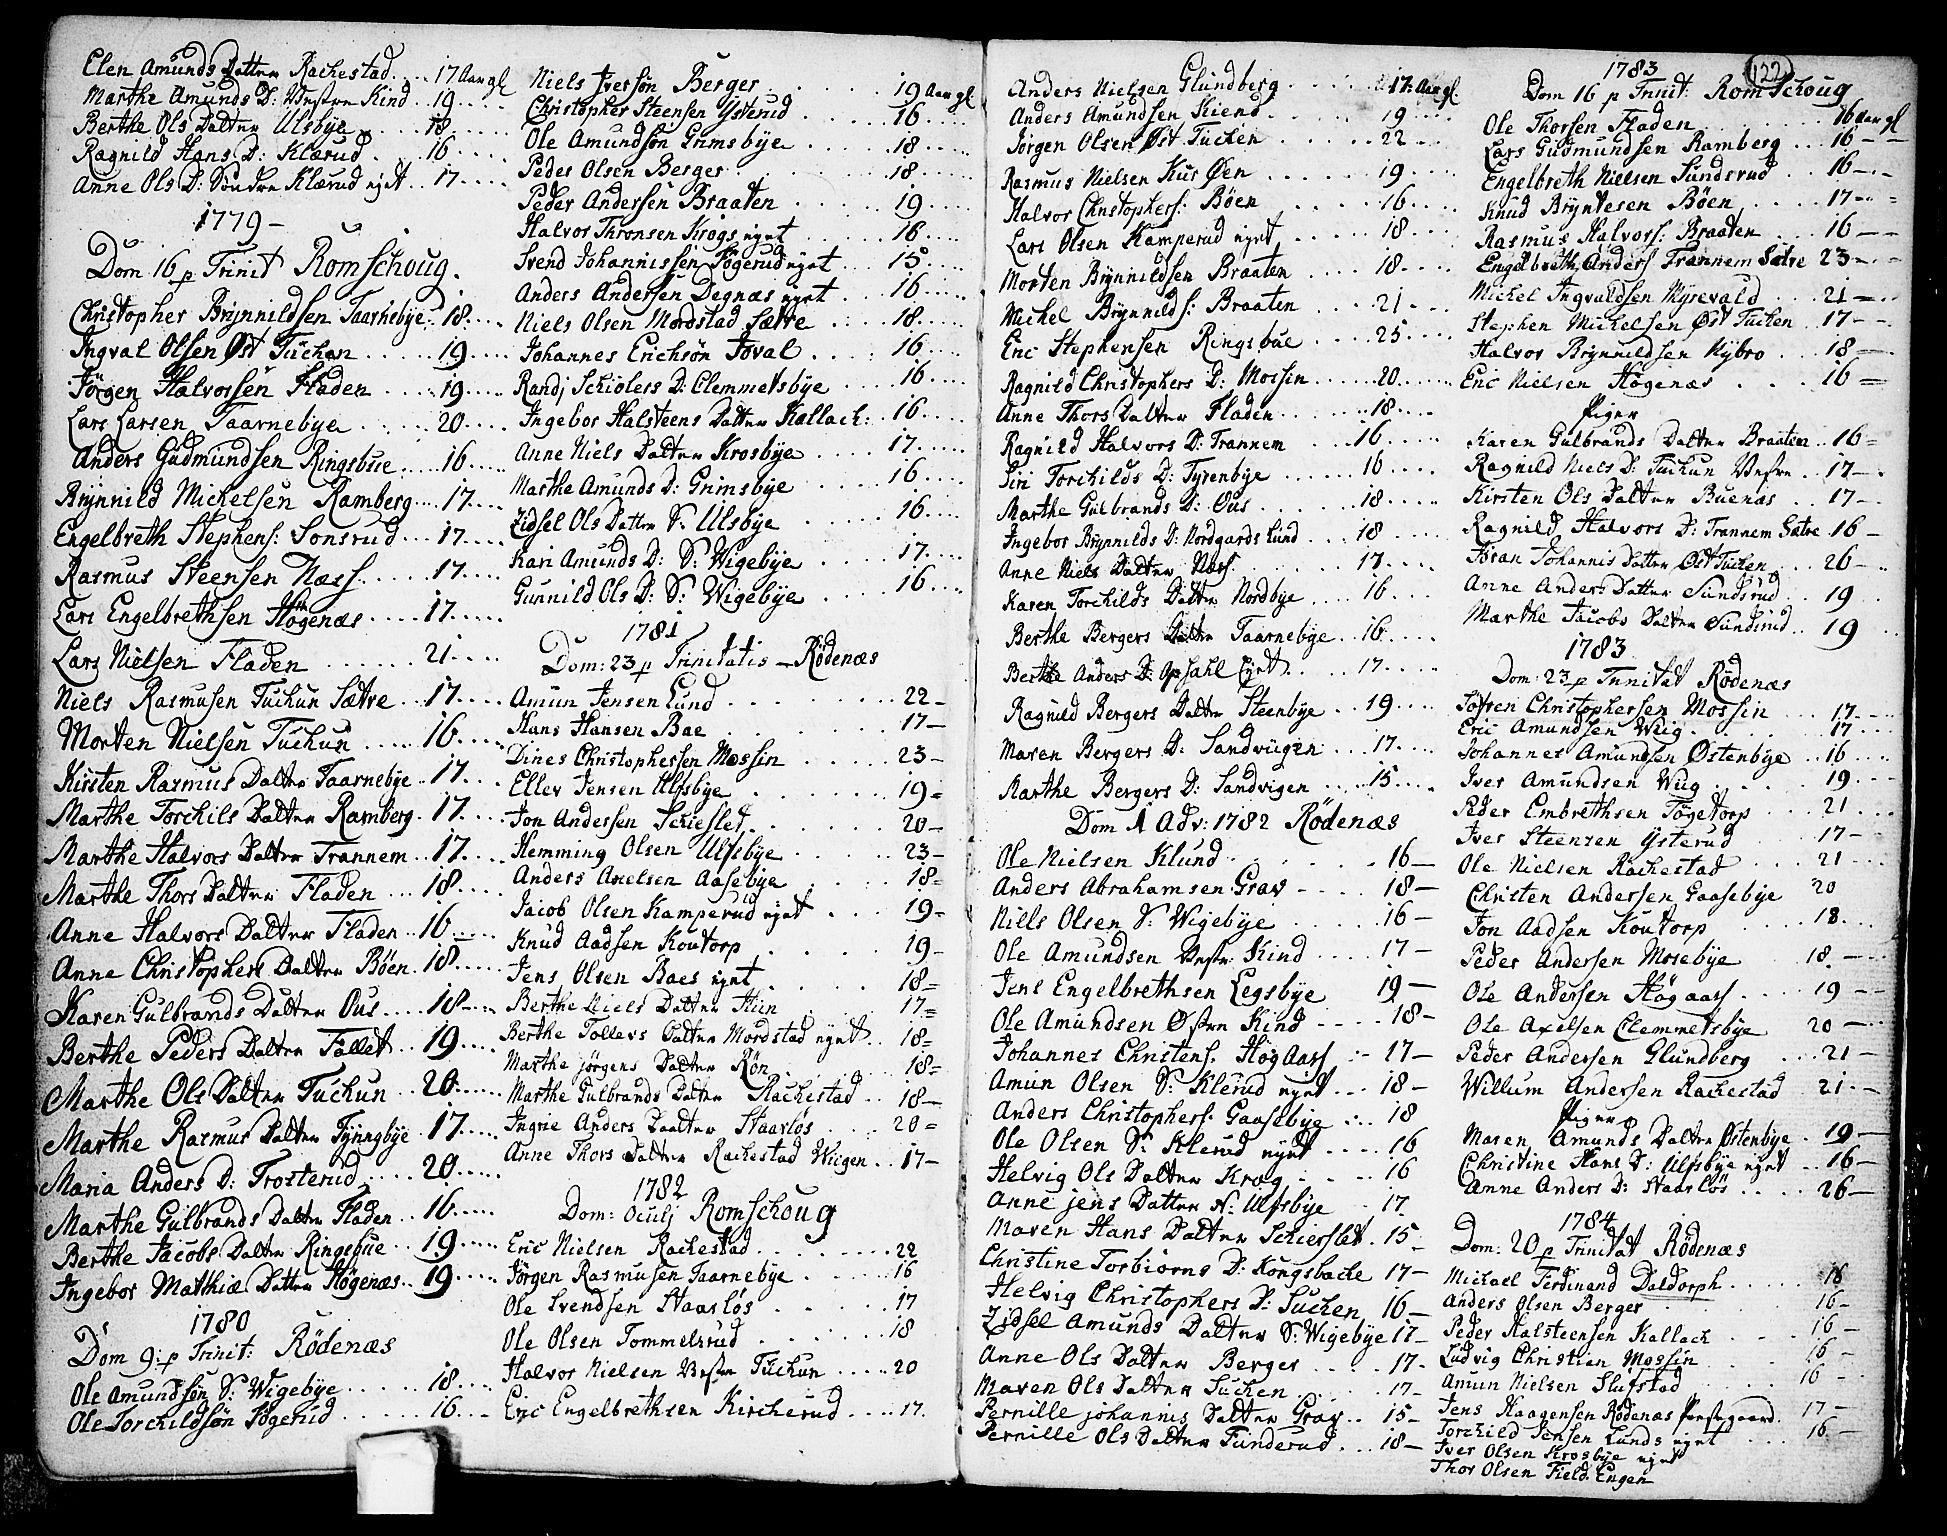 Elen Amunds Datter Rachestad.... 17 Aar gl
Marthe Amunds D: Vestre Kind.. 19....
Berthe Ols Datter Ulsbye...... 18......
Ragnild Hans D: Klærud.. 16.....
Anne Ols D: Söndre Klærud ejnt.. 17.....
1779-
Dom 16 p Trinit Romschoug.
Christopher Brÿnnildsen Taarnebye.. 18....
Ingval Olsen Øst Tüchen...... 19....
Jörgen Halvorsen Fladen..... 19.....
Lars Larsen Taarnebye...... 20.....
Anders Gudmundsen Ringsbue.... 16.....
Brÿnnild Michelsen Ramberg.... 17....
Engelbreth Stephens: Sonsrud... 17.....
Rasmus Steensen Næss..... 17....
Lars Engelbrethsen Högenæs.... 17.....
Lars Nielsen Fladen...... 21.....
Niels Rasmusen Tuchun Sætre... 17....
Morten Nielsen Tüchun..... 16.....
Kirsten Rasmus Datter Taarnebye.. 17....
Marthe Torchils Datter Ramberg. 17....
Marthe Halvors Datter Trannem.. 17....
Marthe Thors Datter Fladen... 18.....
Anne Halvors Datter Fladen.. 16.....
Anne Christophers Datter Böen. 18.....
Karen Gulbrands Datter Ous.... 18....
Berthe Peders Datter Fallet.. 19....
Marthe Ols Datter Tüchun... 20.....
Marthe Rasmus Datter Tÿnngbÿe. 17.....
Maria Anders D: Trosterud.... 20.....
Marthe Gulbrands Datter Fladen.. 16.....
Berthe Jacobs Datter Ringsbue... 19.....
Ingebor Matthiæ Datter Högenæs.. 19.....
1780
Dom 9: p Trinit: Rödenæs
Ole Amundsön S: Wigebÿe...... 18....
Ole Torchildsön Sögerud...... 16....
Niels Iversön Berger...... 19 Aar gl
Christopher Steensen Ÿsterud... 16.....
Ole Amundsön Grimsbÿe...... 18.....
Peder Olsen Berger..... 18....
Peder Andersen Braaten...... 19....
Halvor Thronsen Krogs ejnt...... 16....
Svend Johannissen Sögerud ejnt.. 15....
Anders Andersen Degnæs ejnt... 16.....
Niels Olsen Mordstad Sætre.... 18.....
Johannes Erichsön Joval.... 16....
Randj Schiölers D: Clemmetsbÿe.... 16....
Ingebor Halsteens Datter Kallach. 16....
Anne Niels Datter Krosbÿe..... 17....
Marthe Amunds D: Grimsbÿe..... 16....
Zidsel Ols Datter S: Ulsbÿe...... 16....
Kari Amunds D: S: Wigebÿe..... 17....
Gunnild Ols D: S: Wigebÿe.... 16....
1781
Dom: 23 p Trinitatis - Rödenæs
Amun Jensen Lund...... 22-
Hans Hansen Bae...... 17-
Dines Christophersen Mossin..... 23-
Eller Jensen Ulfsbÿe...... 19=
Jon Andersen Schieslet...... 20-
Hemming Olsen Ulfsbÿe...... 23-
Anders Axelsen Aasebÿe..... 18=
Jacob Olsen Kamperud ejnt.... 19=
Knud Aadsen Koutorp..... 19-
Jens Olsen Baes ejnt..... 18=
Berthe Niels Datter Hien..... 17=
Berthe Tollevs Datter Mordstad ejnt.. 18=
Marthe jörgens Datter Rön...... 18=
Marthe Gulbrands Datter Rachestad.. 18-
Ingrie Anders Daatter Staarlös.... 20=
Anne Thors Datter Rachestad Wiigen.. 17-
1782
Dom: Oculj Romschoug
Eric Nielsen Rachestad......... 22
Jörgen Rasmusen Taarnebÿe...... 16
Ole Svendsen Staarlös...... 17
Ole Olsen Tommelsrud...... 18
Halvor Nielsen Vestre Tüchun..... 20
Eric Engelbrethsen Kircherud.... 17.
Anders Nielsen Glundberg...... 17. Aar gl
Anders Amundsen Kiend...... 19....
Jörgen Olsen Øst Tüchen...... 22...
Rasmus Nielsen Kus Øen...... 19....
Halvor Christophers: Böen...... 16....
Lars Olsen Kamperud ejnt...... 18....
Morten Brÿnnildsen Braaten.... 18....
Michel Brÿnnilds: Braaten... 21.
Eric Stephensen Ringsbue.... 25....
Ragnild Christophers D: Mossin..... 20......
Anne Thors Datter Fladen...... 18....
Ragnild Halvors D: Trannem... 16.....
Siri Torchilds D: Tÿrenbÿe...... 16....
Marthe Gulbrands D: Ous...... 18....
Ingebor Brÿnnilds D: Nordgards Lund.... 18....
Anne Niels Datter Næss...... 17....
Karen Torchilds Datter Nordbÿe.... 16....
Berthe Bergers Datter Taarnebÿe.. 16....
Berthe Anders D: Opsahl Ejnt... 17.....
Ragnild Bergers Datter Steenbÿe.. 19....
Maren Bergers D: Sandvügen... 17....
Marthe Bergers D: Sandvigen..... 15....
Dom 1 Adv: 1782 Rödenæs
Ole Nielsen Klund...... 16-
Anders Abrahamsen Grav.... 18-
Niels Olsen S: Wigebÿe...... 16-
Ole Amundsen Vestr Kind.... 17-
Jens Engelbrethsen Legsbÿe... 19-
Ole Amundsen Østre Kind.... 18-
Johannes Christens. HögAass.. 17-
Amun Olsen S: Klerud ejnt... 18-
Anders Christophers. Gaasebÿe... 18
Ole Olsen S: Klerud ejnt.... 16
Helvig Ols Datter Krog..... 16
Anne jens Datter N: Ulfsbÿe.. 17
Maren Hans Datter Schierslet. 15-
Christine Torbiörns D: Kongsbache 17-
Helvig Christophers D: Tuchen 16-
Zidsel Amunds Datter S: Wigebÿe 17-
Anne Ols Datter Berger.... 17-
Maren Ols Datter Tuchen.... 17-
Pernille johannis Datter Grav.. 15-
Pernille Ols Datter Funderud... 18-
122
1783
Dom 16 p Trinit: Romschoug
Ole Thorsen Fladen...... 16 Aar gl
Lars Gudmundsen Ramberg... 16--
Engelbreth Nielsen Sundsrud.. 16-.-
Knud Brÿntesen Böen.... 17-..-
Rasmus Halvors: Braaten... 16--
Engelbreth Anders Trannem Sætre 23--
Michel Ingvaldsen Mÿrevald... 21-
Stephen Michelsen Øst Tuchen.. 17--
Halvor Brÿnnildsen Nÿbro... 18-
Eric Nielsen Högenæs.... 16=
Piger
Karen Gulbrands Datter Braaten.. 16=
Ragnild Niels D: Tuchun Vestre.. 17-.
Kirsten Ols Datter Buenæs.. 17-
Ragnild Halvors D: Trannem Sætre 16-
Joran Johannis Datter Øst Tuchen... 26-.
Anne Anders Datter Sundsrud.. 19
Marthe Jacobs Datter Sundsrud.. 19
1783
Dom: 23 p Trinitat Rödenæs
Söfren Christophersen Mossin... 17-
Eric Amundsen Wiig..... 17
Johannes Amundsen Østenbÿe.. 16
Iver Amundsen Wiig.... 19
Peder Embrethsen Tögetorp.... 21
Iver Steensen Ÿsterud.... 17-
Ole Nielsen Rachestad.... 21
Christen Andersen Gaasebÿe 20
Jon Aadsen Koutorp.... 18.
Peder Andersen Mosebÿe.... 18.-
Ole Andersen Högaass.... 19-
Ole Axelsen Clemmetsbÿe 20-
Peder Andersen Glundberg... 21-
Willum Andersen Rachestad 21-
Piger
Maren Amunds Datter Østenbÿe. 19-
Christine Hans D: Ulfsbÿe ejnt.. 16-
Anne Anders D: Staarlös.... 26-
1784
Dom: 20 p Trinitat Rödenæs
Michael Ferdinand Daldorph...... 18
Anders Olsen Berger 16-
Peder Halsteensen Kallach.. 16-
Ludvig Christian Mossin.... 16-
Amun Nielsen Slufstad.... 16-
Jens Haagensen Rödenæs Præstegaard. 17-
Torchild Jensen Lunds ejnt.... 16-
Iver Olsen Krosbÿe ejnt
Thor Olsen Field Engen